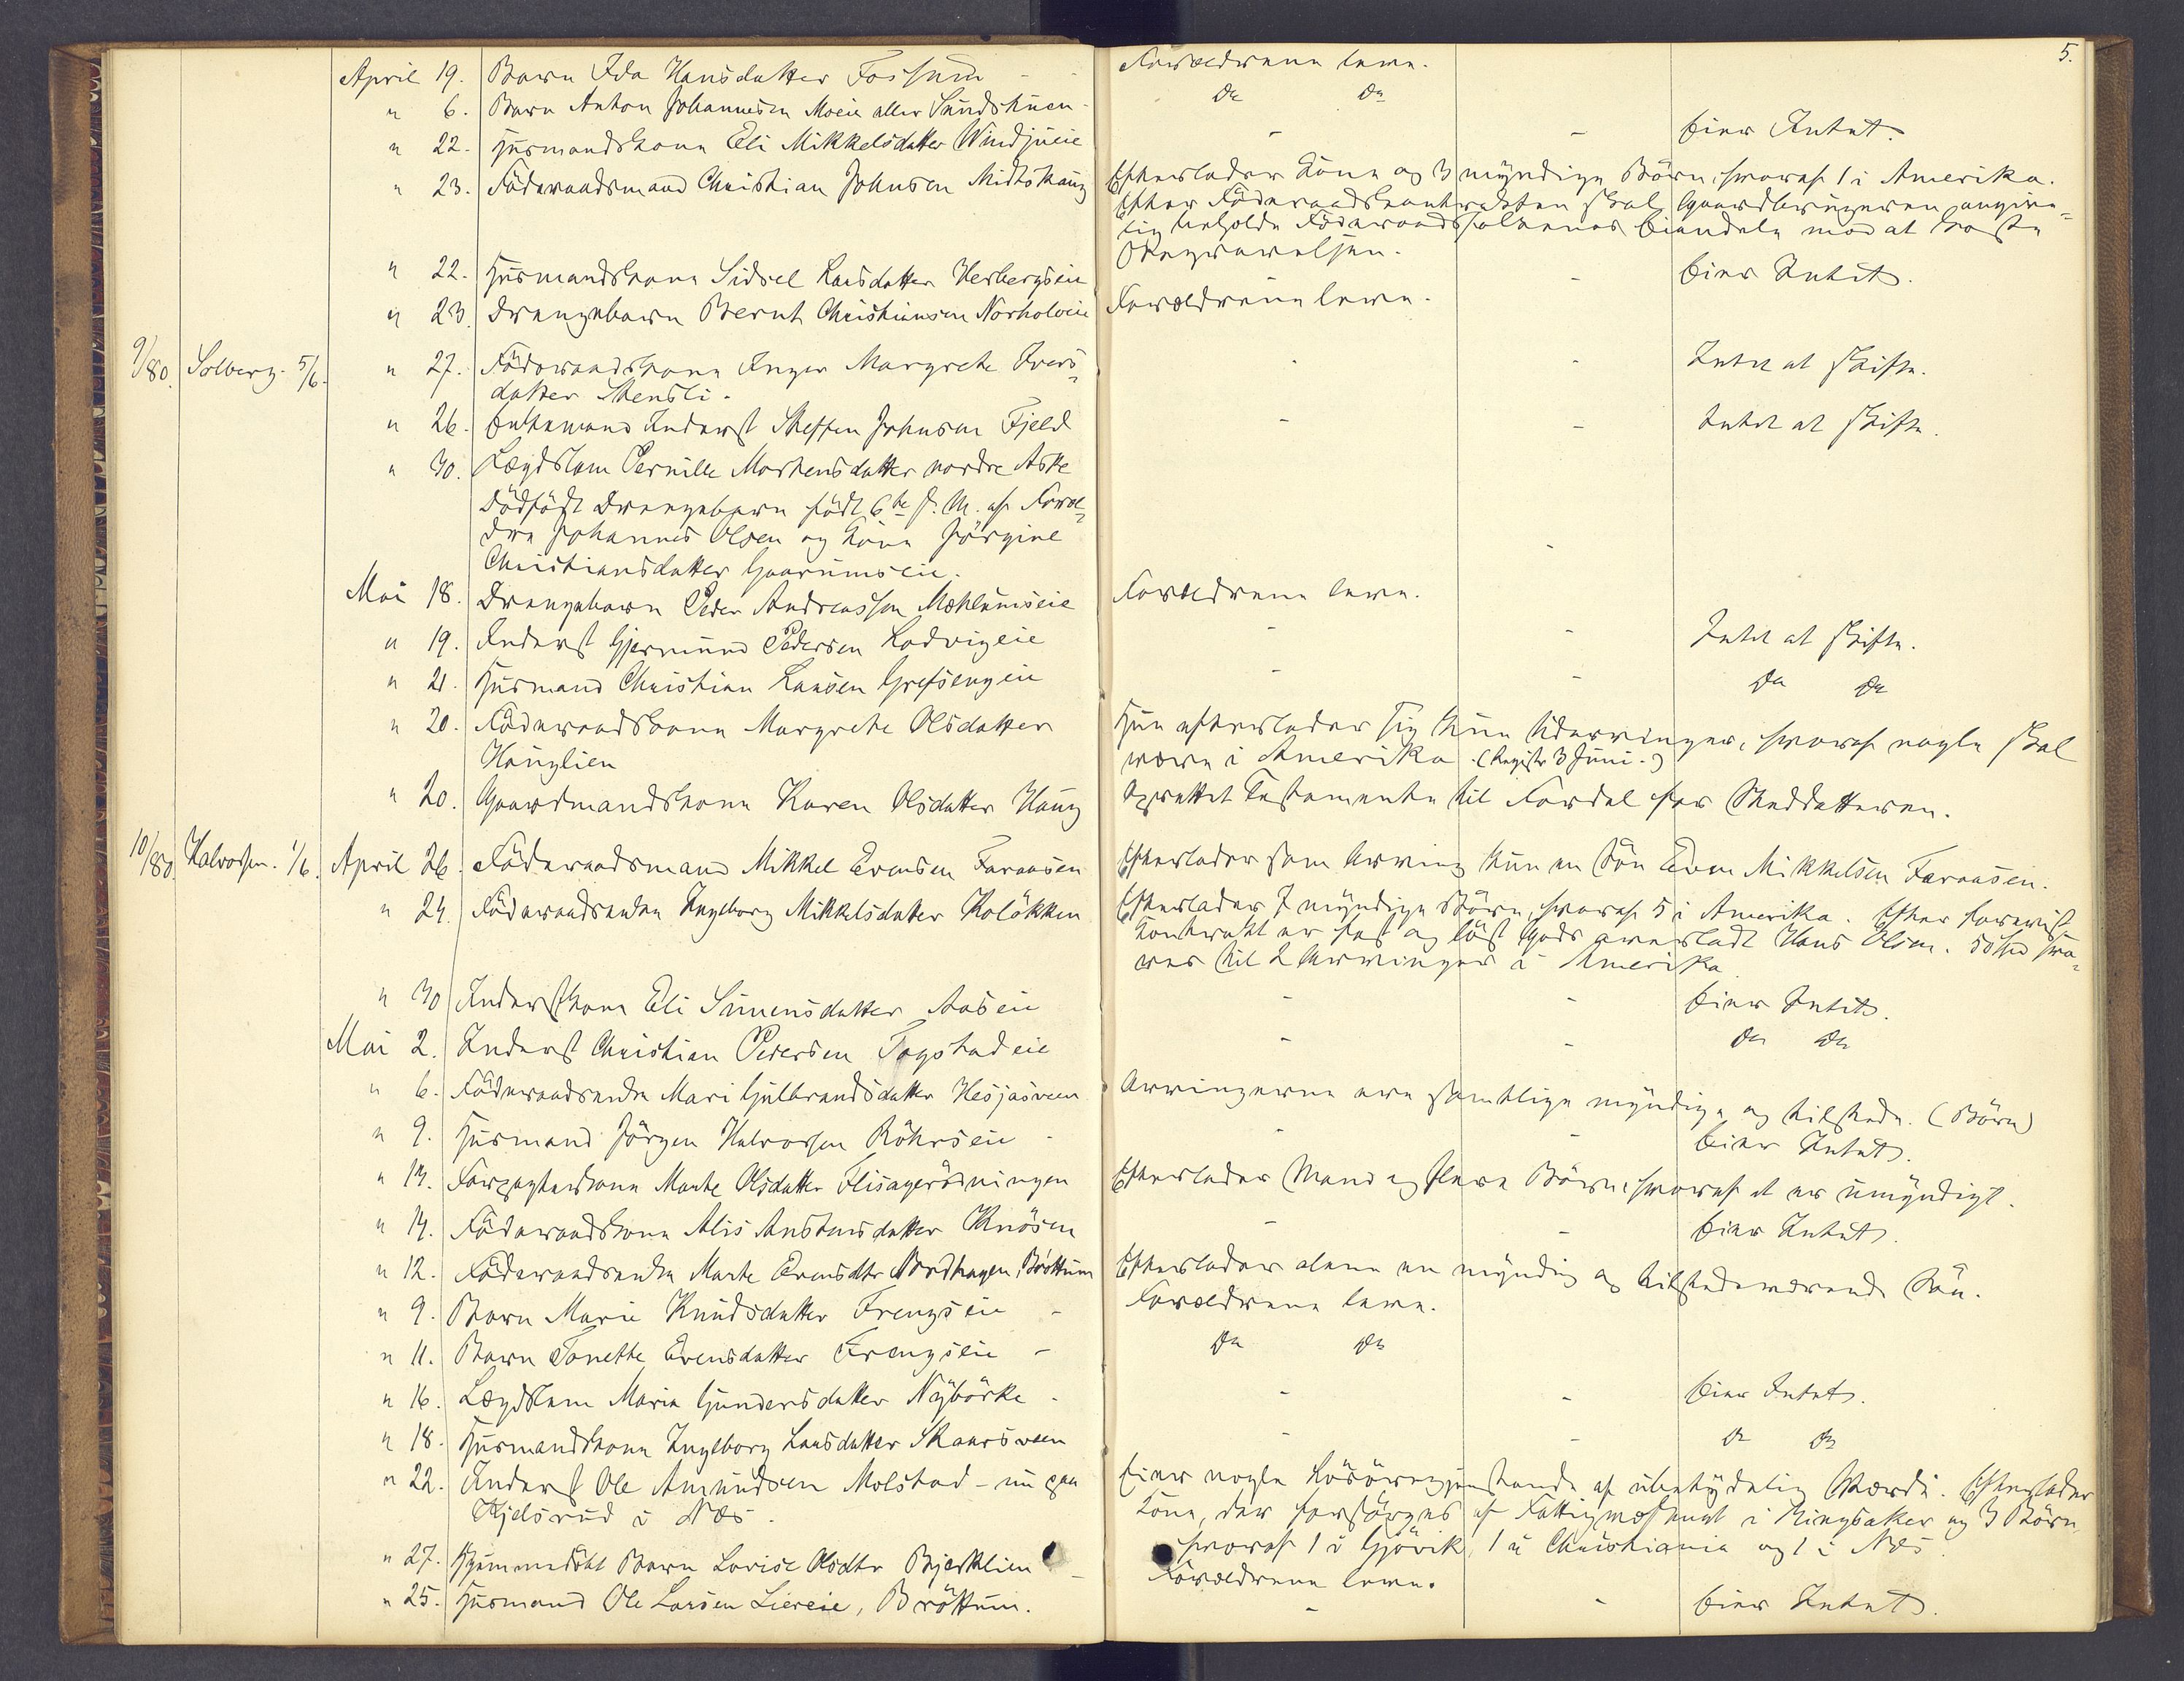 5.
April 19. Barn Ida Hansdatter Fossum - - Forældrene leve.
" 6. Barn Anton Johannesen Moeie eller Sundstuen - Do Do
" 22. Husmandskone Eli Mikkelsdatter Windjueie - - Eier Intet.
" 23. Föderaadsmand Christian Johnsen Midtskaug Efterlader Kone og 3 myndige Börn, hvoraf 1 i Amerika.
Efter Föderaadskontrakten skal Gaardbrugeren angive-
lig beholde Föderaadsfolkenes Eiendele mod at koste
Begravelsen.
" 22. Husmandskone Sidsel Larsdatter Herbergseie - Eier Intet.
" 23. Drengebarn Bernt Christiansen Norholveie Forældrene leve.
9/80. Solberg. 5/6. " 27. Föderaadskone Inger Margrethe Ivers- - - Intet at skifte.
datter Stensli.
" 26. Enkemand Inderst Steffen Johnsen Fjeld - - Intet at skifte.
" 30. Lægdslem Pernille Mortensdatter nordre Aske
Dödfödt Drengebarn födt 6te d. M. af Foræl-
dre Johannes Olsen og Kone Jörgine
Christiansdatter Gaarumseie. -
Mai 18. Drengebarn Peder Andreassen Mæhlumseie Forældrene leve.
" 19. Inderst Gjermund Pedersen Lodvigeie - - Intet at skifte.
" 21. Husmand Christian Larsen Grefsengeie - - Do Do
" 20. Föderaadskone Margrethe Olsdatter Hun efterlader sig kun Udarvinger, hvoraf nogle skal
Hauglien være i Amerika. (Registr 3 Juni.)
" 20. Gaardmandskone Karen Olsdatter Haug Oprettet Testamente til Fordel for Steddatteren.
10/80. Halvorsen. 1/6. April 26. Föderaadsmand Mikkel Evensen Faraasen Efterlader som Arving kun en Sön Even Mikkelsen Faraasen.
" 24. Föderaadsenke Ingeborg Mikkelsdatter Kolökken Efterlader 7 myndige Börn, hvoraf 5 i Amerika. Efter forevist
Kontrakt er fast og löst Gods overladt Hans Olsen. 50 Spd sva-
res til 2 Arvinger i Amerika
" 30 Inderstkone Eli Simensdatter Aaseie - - Eier Intet.
Mai 2. Inderst Christian Pedersen Fogstadeie - - Do Do
" 6. Föderaadsenke Mari Gulbrandsdatter Hesjasveen Arvingerne ere samtlige myndige og tilstede. (Börn)
" 9. Husmand Jörgen Halvorsen Röhrseie - - - Eier Intet.
" 13. Forpagterkone Marte Olsdatter Flisagerödningen Efterlader Mand og flere Börn, hvoraf et er umyndigt.
" 14. Föderaadskone Alis Anstensdatter Knösen - - Eier Intet.
" 12. Föderaadsenke Marte Evensdtr Nordhagen, Bröttum Efterlader alene en myndig og tilstedeværende Sön.
" 9. Barn Marie Knudsdatter Frengseie - Forældrene leve.
" 11. Barn Tonette Evensdatter Frengseie - Do Do
" 16. Lægdslem Maria Gundersdatter Nybörke - - - Eier Intet.
" 18. Husmandskone Ingeborg Larsdatter Skaarsveen - - Do Do
" 22. Inderst Ole Amundsen Molstad - nu paa Eier nogle Lösöregjenstande af ubetydelig Værdi. Efterlader
Kjelsrud i Næs. Kone, der forsörges af Fattigvæsenet i Ringsaker og 3 Börn,
hvoraf 1 i Gjövik, 1 i Christiania og 1 i Næs
" 27. Hjemmedöbt Barn Lovise Olsdtr Bjerklien - Forældrene leve.
" 25. Husmand Ole Larsen Liereie, Bröttum. - - Eier Intet.